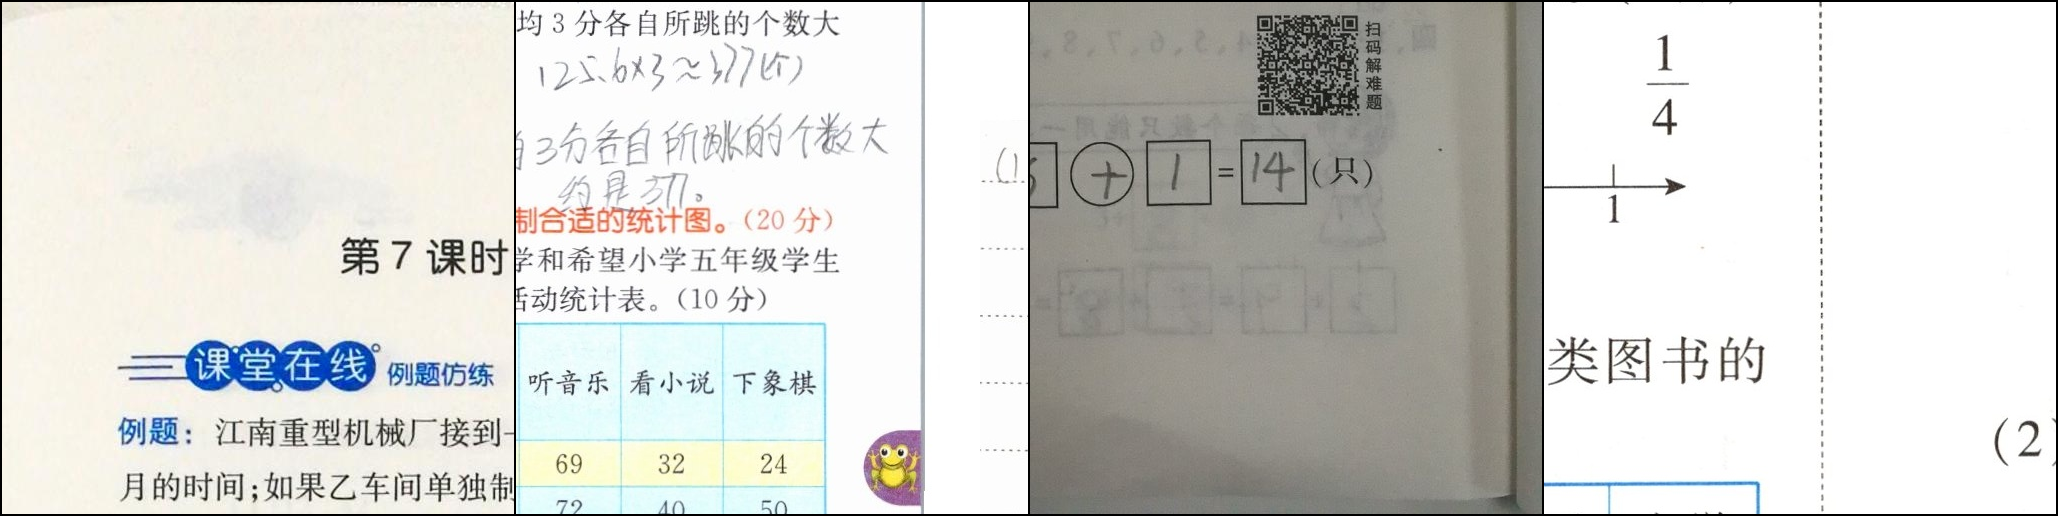 第7课时
课堂在线 例题仿练
例题：江南重型机械厂接到
月的时间；如果乙车间单独制
均3分各自所跳的个数大
125.6×3≈377(个)
3分各自所跳的个数大
约是377。
制合适的统计图。（20分）
学和希望小学五年级学生
活动统计表。（10分）
听音乐 看小说 下象棋
69 32 24
72 40 50
扫码解难题
+ 1 = 14 (只)
1/4
1
类图书的
(2)